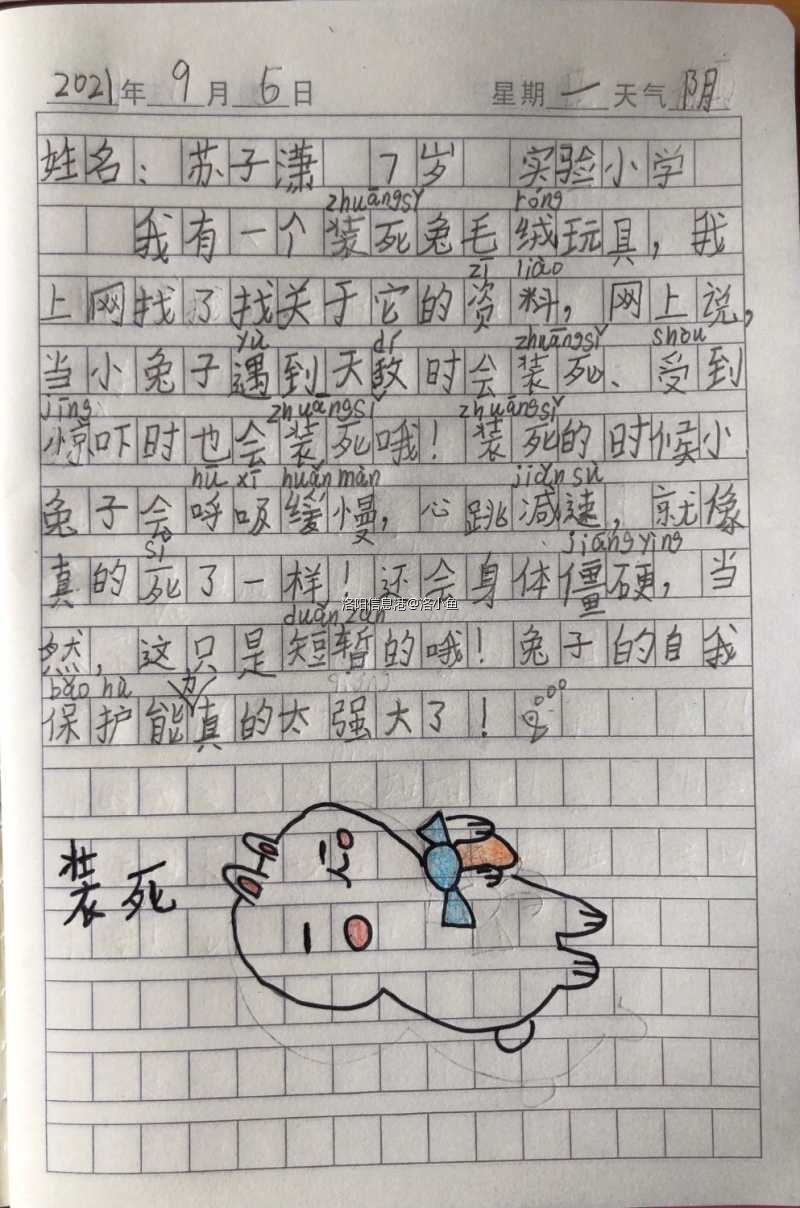 2021年9月6日 星期一天气阴
姓名：苏子潇 7岁 实验小学
zhuāngsǐ róng
我有一个装死兔毛绒玩具，我
zī liào
上网找了找关于它的资料，网上说，
yù dí zhuāngsǐ shòu
当小兔子遇到天敌时会装死、受到
jīng zhuāngsǐ zhuāngsǐ
惊吓时也会装死哦！装死的时候小
hū xī huǎn màn jiǎn sù
兔子会呼吸缓慢，心跳减速，就像
sǐ jiāng yìng
真的死了一样！还会身体僵硬，当
洛阳信息港@洛小鱼
duǎn zàn
然，这只是短暂的哦！兔子的自我
bǎo hù 力
保护能真的太强大了！
装死